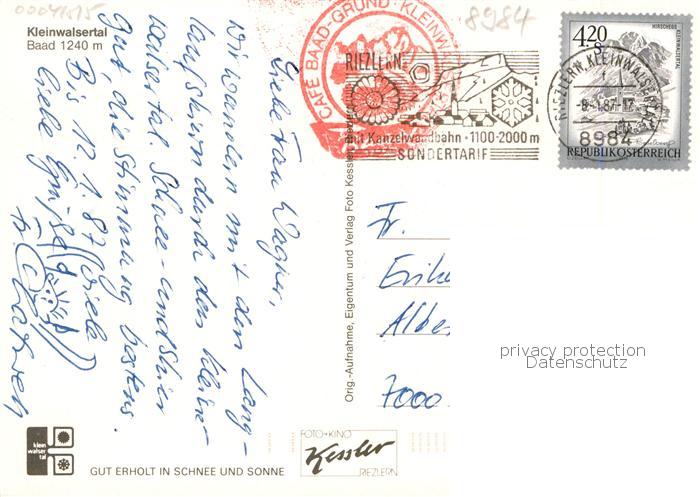 00041515
8984
Kleinwalsertal
Baad 1240 m
Liebe Frau Wagner,
wir wandern mit den Lang-
laufskiern durch das Klein-
walsertal. Schnee- und Skier
gut, die Stimmung bestens.
Bis 12.1.87 viele
liebe Grüße
CAFÉ BAAD-GRUND · KLEINW
RIEZLERN
mit Kanzelwandbahn · 1100-2000 m
SONDERTARIF
4.20
S
HIRSCHEGG
KLEINWALSERTAL
REPUBLIK ÖSTERREICH
RIEZLERN, KLEINWALSERTAL
-8.-1.87-17
8984
Orig.-Aufnahme, Eigentum und Verlag Foto Kessler Riezlern
Fr.
Erike
Albe
7000
privacy protection
Datenschutz
klein
walser
tal
GUT ERHOLT IN SCHNEE UND SONNE
FOTO + KINO
Kessler
RIEZLERN